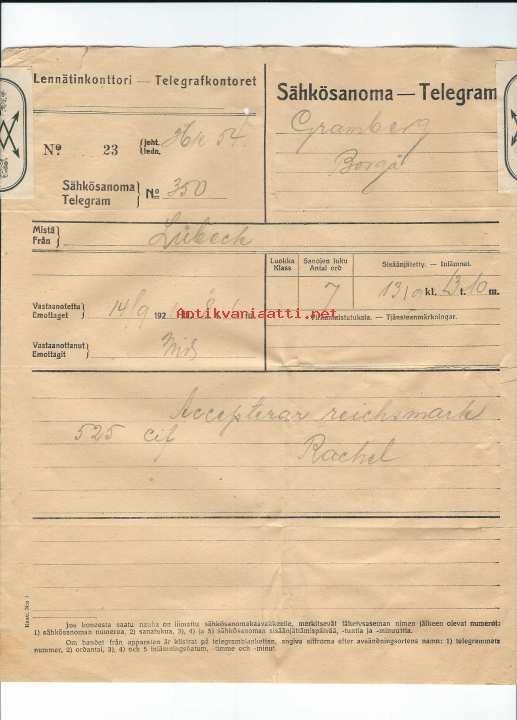 Lennätinkonttori — Telegrafkontoret
Sähkösanoma — Telegram
Gramberg
Borgå
Nº 23 (joht. Hk 54
(Ledn.
Sähkösanoma
Telegram } Nº 350
Mistä
Från } Lübeck
Luokka
Klass
Sanojen luku
Antal ord
7
Sisäänjätetty. — Inlämnat.
13/9 kl. 13 t. 10 m.
Vastaanotettu
Emottaget } 14/9 192
Antikvariaatti.net
Virkamuistutuksia. — Tjänsteanmärkningar.
Vastaanottanut
Emottagit }
Accepterar reichsmark
525 cif
Rachel
Jos koneesta saatu nauha on liimattu sähkösanomakaavakkeelle, merkitsevät lähetysaseman nimen jälkeen olevat numerot:
1) sähkösanoman numeroa, 2) sanalukua, 3), 4) ja 5) sähkösanoman sisäänjättämispäivää, -tuntia ja -minuuttia.
Om bandet från apparaten är klistrat på telegramblanketten, angiva siffrorna efter avsändningsortens namn: 1) telegrammets
nummer, 2) ordantal, 3), 4) och 5 inlämningsdatum, -timme och -minut.